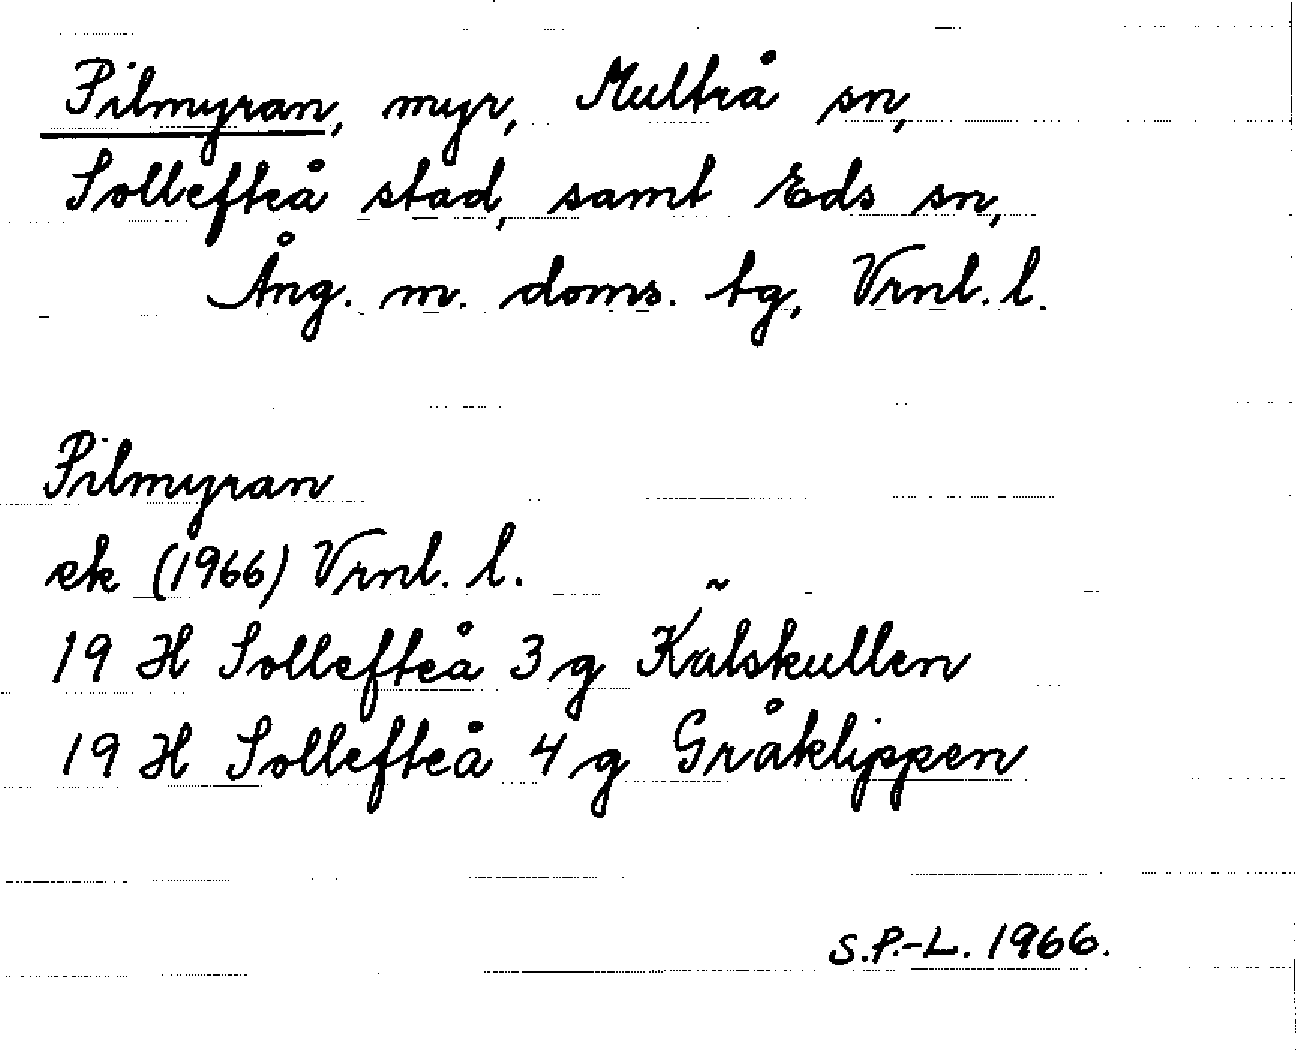 Pilmyran, myr, Multrå sn,
Sollefteå stad, samt Eds sn,
Ång. m. doms. tg, Vrnl. l.
Pilmyran
ek (1966) Vrnl. l.
19 H Sollefteå 3 g Kälskullen
19 H Sollefteå 4 g Gråklippen
S.P.-L. 1966.